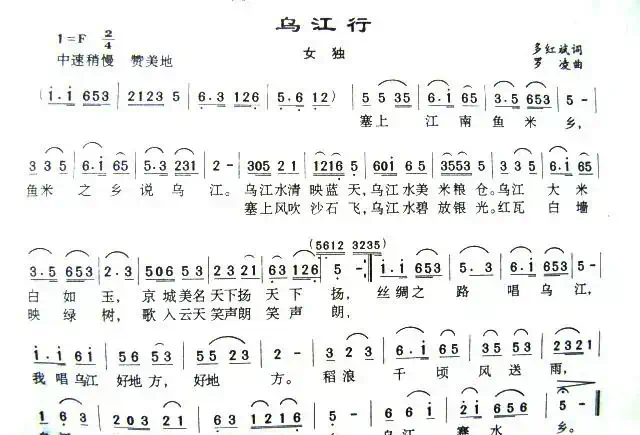 乌江行
1=F 2/4
女 独
多红斌词
中速稍慢 赞美地
罗 凌曲
(i·i 653 | 2123 5 | 6·3 126 | 5·6 12) | 5 5 35 | 6·i 65 | 3·5 653 | 5 - |
塞上 江南鱼米 乡,
3 3 5 | 6·i 65 | 5·3 231 | 2 - | 305 21 | 1216 5 | 60i 65 | 3553 5 | 3 3 5 | 6·i 65 |
鱼米 之 乡 说 乌 江。 乌江水清 映蓝 天,乌江水美 米粮 仓。乌江 大 米
塞上风吹 沙石 飞,乌江水碧 放银 光。红瓦 白 墙
(5612 3235)
3·5 653 | 2·3 | 506 53 | 2 3 21 | 63 126 | 5 - :| i·i 653 | 5·3 | 6·i 653 | 5 - |
白 如 玉, 京城美名 天下扬 天 下 扬, 丝绸之 路 唱 乌江,
映 绿 树, 歌入云天 笑声朗 笑 声 朗,
i·i 6i | 56 53 | 55 23 | 2 - | 3 2 3 | 6·i 65 | 3·5 653 | 2321 |
我唱乌江 好地 方,好地 方。 稻浪 千 顷 风 送 雨,
1 6 3 | 203 21 | 63 1216 | 5 - | 6 6 i | 2i 656 | 5 - | 5 - ‖
乌江 塞 水 乡。